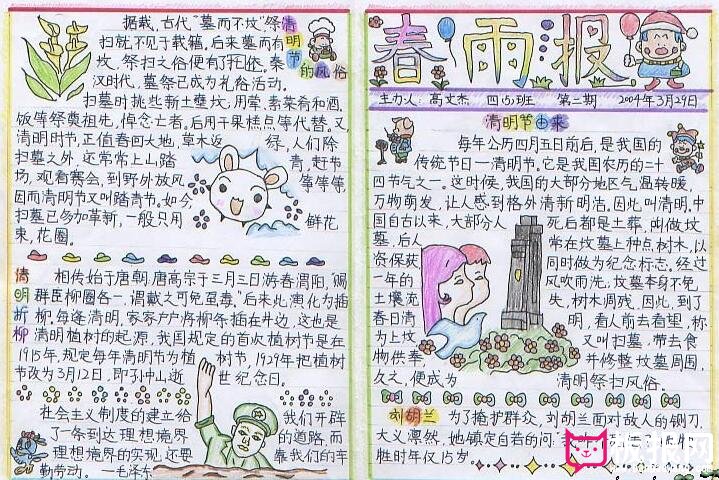 春雨报
主办人：高文杰 四(5)班 第二期 2004年3月29日
清明节由来
每年公历四月五日前后，是我国的
传统节日—清明节。它是我国农历的二十
四节气之一。这时候，我国的大部分地区气温转暖，
万物萌发，让人感到格外清新明洁，因此叫清明。中
国自古以来，大部分人 死后都是土葬，叫做坟
墓，后人 常在坟墓上种点树木，以
资保获 同时做为纪念标志。经过
一年的 风吹雨洗，坟墓本身不免
土壤充 失，树木凋残。因此，到了
春日清 明，看人前去看望，称
为上坟 又叫扫墓，带去食
物供奉， 并修整坟墓周围，
久之，便成为 清明祭扫风俗。
刘胡兰 为了掩护群众，刘胡兰面对敌人的铡刀，
大义凛然，她镇定自若的问
牲时年仅15岁。
清明节的风俗
据载，古代“墓而不坟”，祭
扫就不见于载籍，后来墓而有
坟，祭扫之俗便有了托依。秦
汉时代，墓祭已成为礼俗活动。
扫墓时挑些新土壅坟；用荤、素菜肴和酒、
饭等祭奠祖先，悼念亡者，后用干果糕点等代替。又
清明时节，正值春回大地，草木返 祭，人们除
扫墓之外，还常常上山踏 青，赶节
场，观看赛会，到野外放风 等等等，
因而清明节又叫踏青节。如今，
扫墓已多加革新，一般只用 鲜花
束，花圈。
清明折柳
相传始于唐朝，唐高宗于三月三日游春渭阳，赐
群臣柳圈各一，谓戴之可免虿毒。后来此演化为插
柳。每逢清明，家家户户将柳条插在井边，这也是
清明植树的起源，我国规定的首次植树节是在
1915年，规定每年清明节为植 树节，1929年把植树
节改为3月12日，即孙中山逝 世纪念日。
社会主义制度的建立给 我们开辟
了一条到达理想境界 的道路，而
理想境界的实现还要 靠我们的辛
勤劳动。 —毛泽东